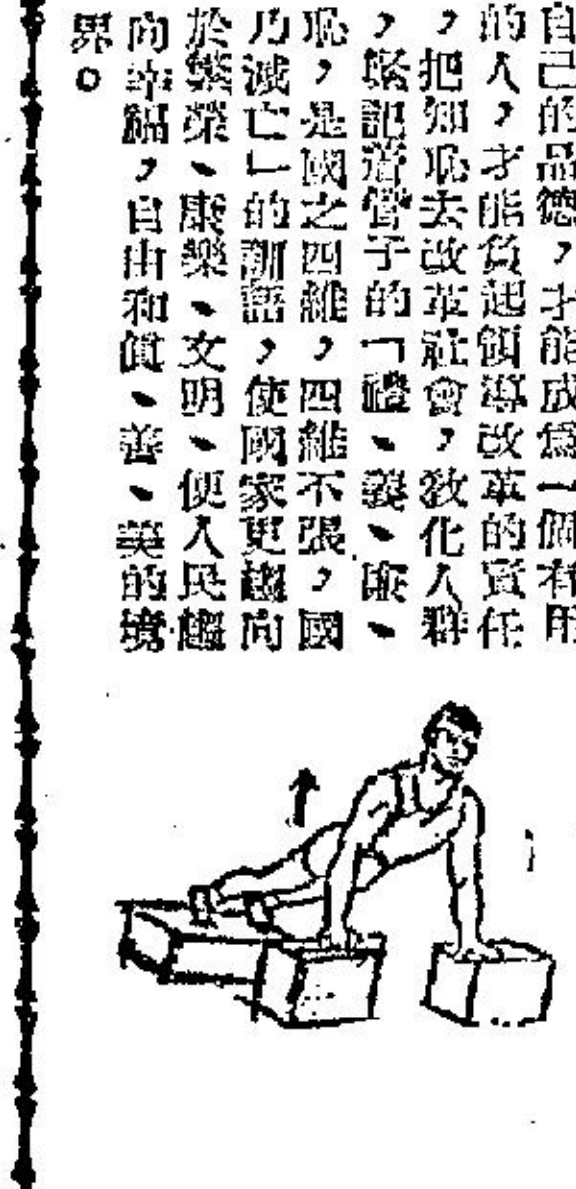 自己的品德，才能成爲一個有用
的人，才能負起領導改革的責任
，把知恥去改革社會，教化人群
，緊記着管子的「禮、義、廉、
恥，是國之四維，四維不張，國
乃滅亡」的訓語，使國家更趨向
於繁榮、康樂、文明、使人民趨
向幸福，自由和眞、善、美的境
界。